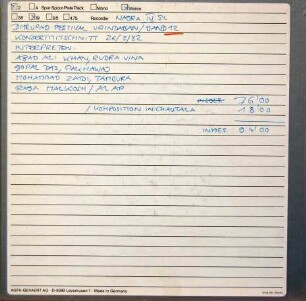 2 4 Spur-Spiour-Piste-Track Mono Stereo
38 19 9.5 4.75 Recorder NAGRA IV S2
DHRUPAD FESTIVAL VRINDABAN/BAND 12
KONZERTMITSCHNITT 26/2/82
INTERPRETEN:
ASAD ALI KHAN, RUDRA VINA
GOPAL DAS, PAKHAWAJ
MOHAMMAD ZAIDI, TAMBURA
RAGA MALKOSH / ALAP
INSGES 76'00
/ KOMPOSITION IN CHAUTALA 18'00
INSGES 94'00
AGFA-GEVAERT AG D-5090 Leverkusen 1 Made in Germany